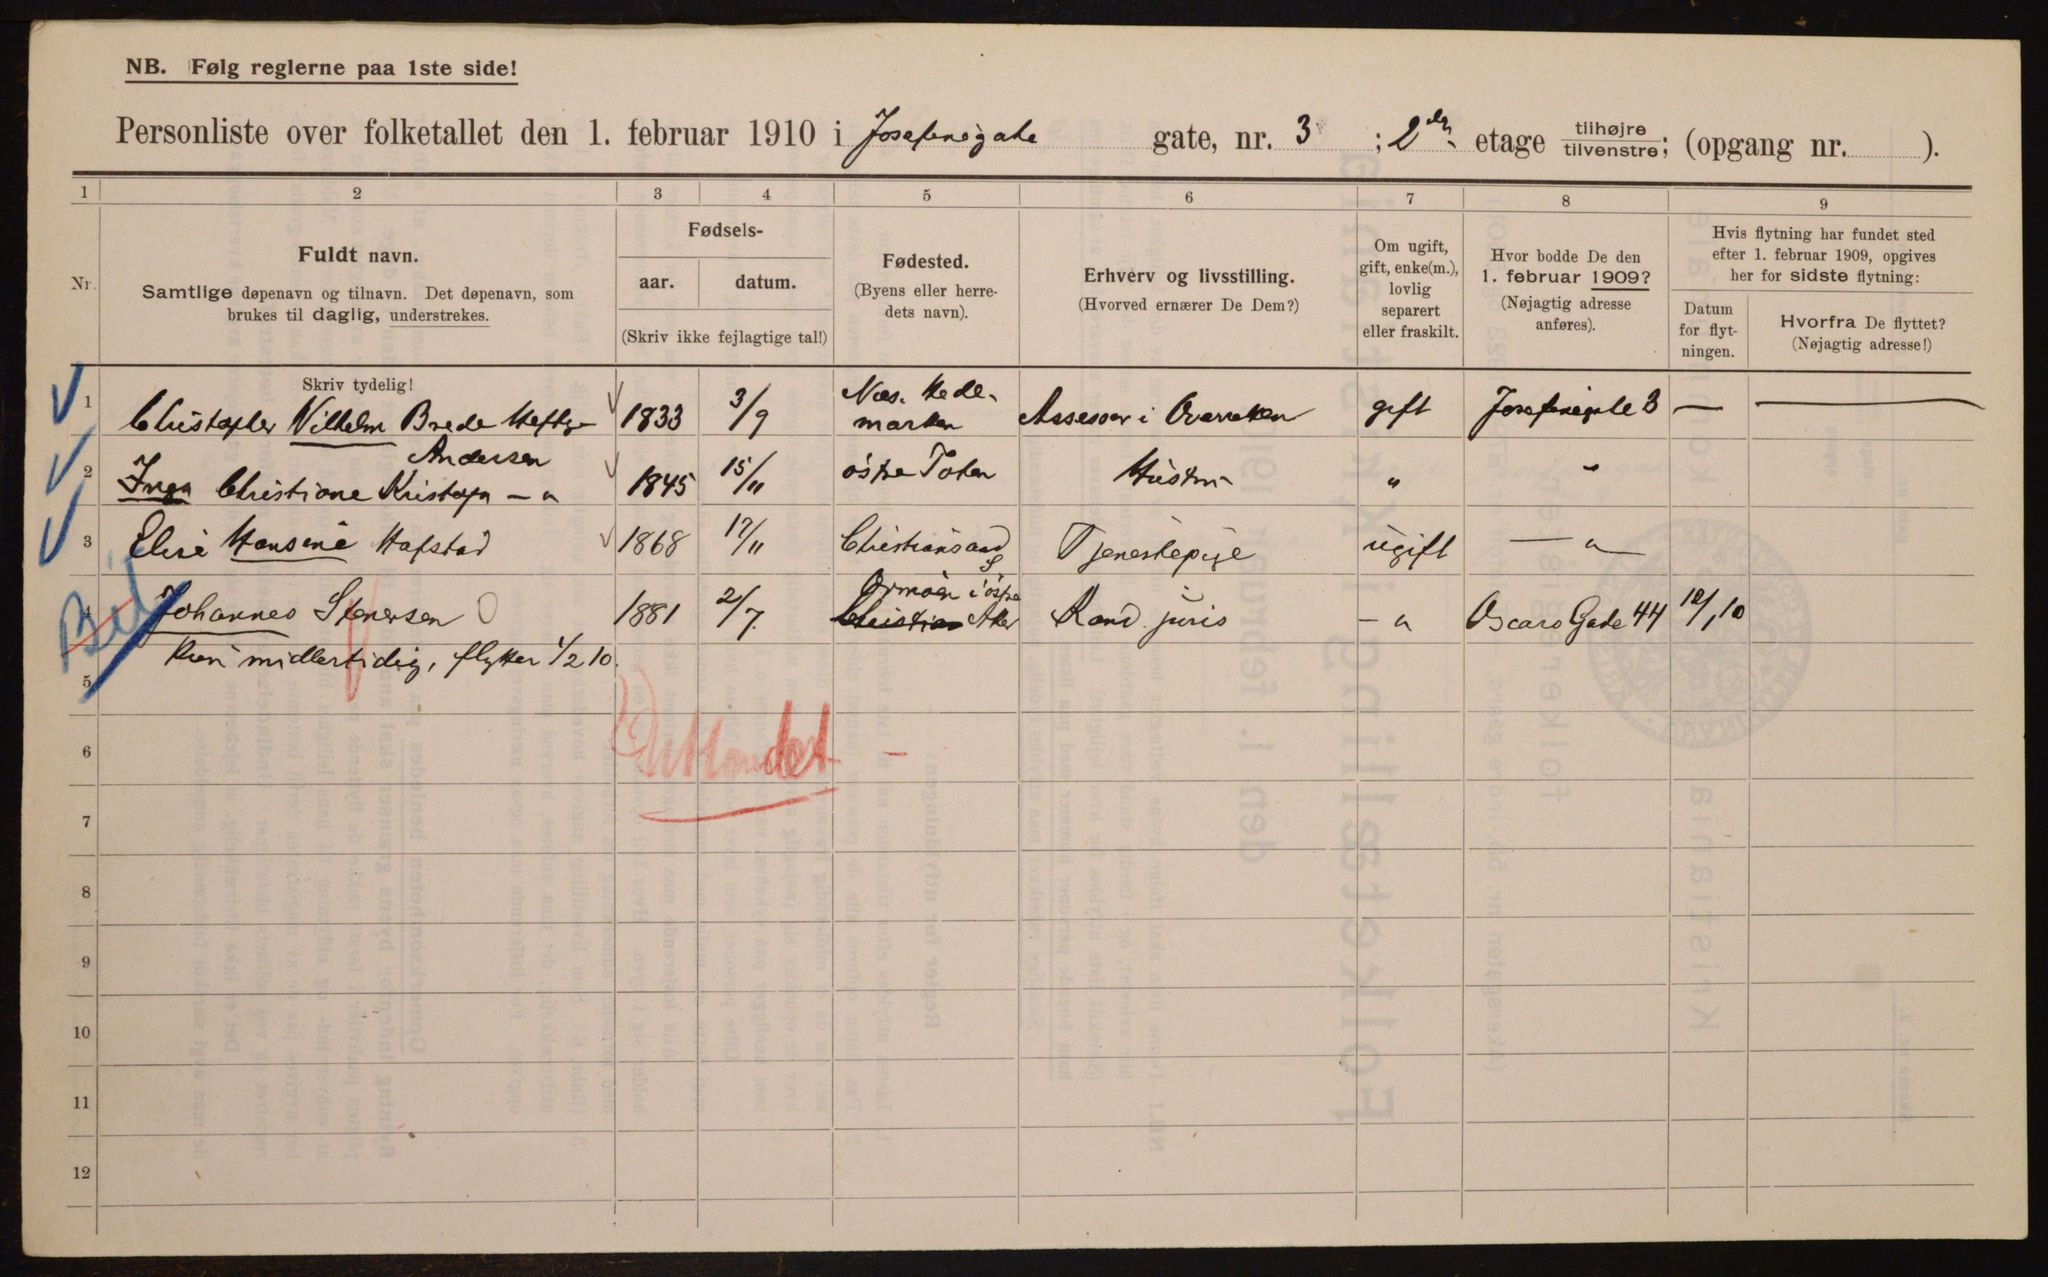 NB. Følg reglerne paa 1ste side!
Personliste over folketallet den 1. februar 1910 i Josefinegate gate, nr. 3 ; 2den etage tilhøjre tilvenstre; (opgang nr. ).
1 2 3 4 5 6 7 8 9
Nr.
Fuldt navn.
Samtlige døpenavn og tilnavn. Det døpenavn, som
brukes til daglig, understrekes.
Fødsels-
aar. datum.
(Skriv ikke fejlagtige tal!)
Fødested.
(Byens eller herre-
dets navn).
Erhverv og livsstilling.
(Hvorved ernærer De Dem?)
Om ugift,
gift, enke(m.),
lovlig
separert
eller fraskilt.
Hvor bodde De den
1. februar 1909?
(Nøjagtig adresse
anføres).
Hvis flytning har fundet sted
efter 1. februar 1909, opgives
her for sidste flytning:
Datum
for flyt-
ningen.
Hvorfra De flyttet?
(Nøjagtig adresse!)
Skriv tydelig!
1 Christopher Vilhelm Brede Heftye 1833 3/9 Næs. Hede-
marken Assessor i Overretten gift Josefinegate 3 —
Andersen
2 Inga Christiane — " 1845 15/11 østre Toten Hustru " "
3 Elise Hansine Hafstad 1868 17/11 Christiansand S Tjenestepige ugift — " —
4 Johannes Stenersen 1881 2/7 Ormøen i østre
Aker Kand. juris — " Oscars Gade 44
kun midlertidig, flytter 1/2 10.
5
Utlandet —
6
7
8
9
10
11
12